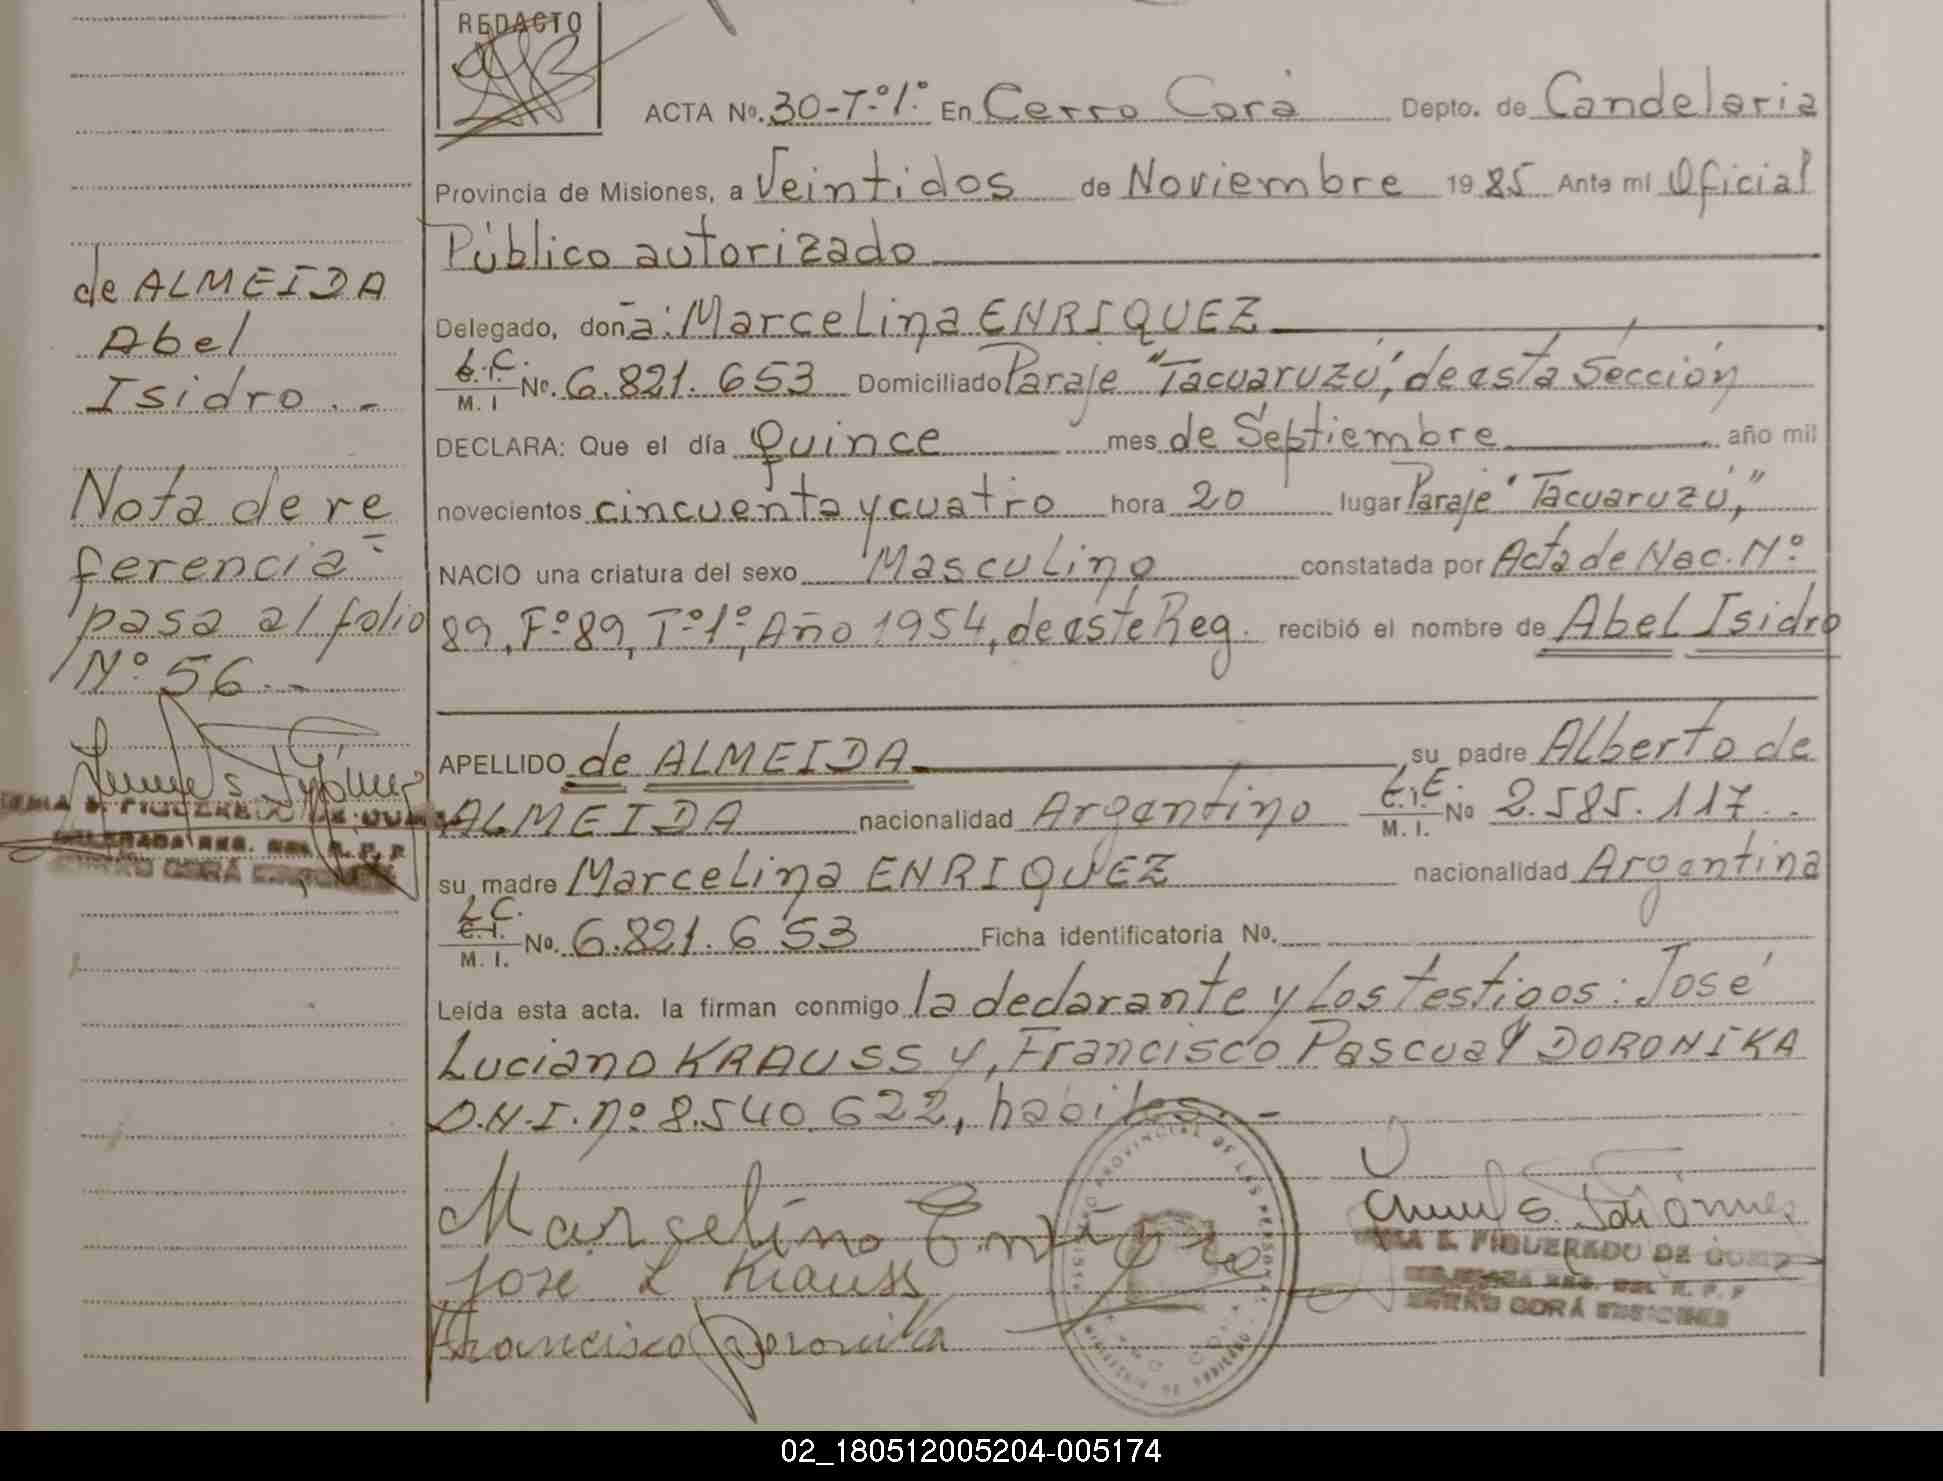 REDACTO
ACTA No. 30-Tº1º En Cerro Corá Depto. de Candelaria
Provincia de Misiones, a Veintidos de Noviembre 1985 Ante mi Oficial
Público autorizado
Delegado, doña: Marcelina ENRIQUEZ
L.C. No. 6.821.653 Domiciliado Paraje "Tacuaruzú", de esta Sección
M. I
DECLARA: Que el día Quince mes de Septiembre año mil
novecientos cincuenta y cuatro hora 20 lugar Paraje "Tacuaruzú,"
NACIO una criatura del sexo Masculino constatada por Acta de Nac. Nº
89, Fº 89, Tº1º, Año 1954, de este Reg. recibió el nombre de Abel Isidro
APELLIDO de ALMEIDA su padre Alberto de
ALMEIDA nacionalidad Argentino L.E. No 2.585.117.
M. I.
su madre Marcelina ENRIQUEZ nacionalidad Argentina
L.C.
C.I. No. 6.821.653 Ficha identificatoria No.
M. I.
Leída esta acta. la firman conmigo la declarante y los testigos: José
Luciano KRAUSS y, Francisco Pascual DORONIKA
D.N.I. nº 8.540.622, habiles.-
Marcelino Enriquez
Jose L Krauss
Francisco Doronika
FIGUEREDO DE
CORÁ MISIONES
de ALMEIDA
Abel
Isidro.-
Nota de re
ferencia-
pasa al folio
Nº 56.-
FIGUEREDO DE
CORÁ
02_180512005204-005174